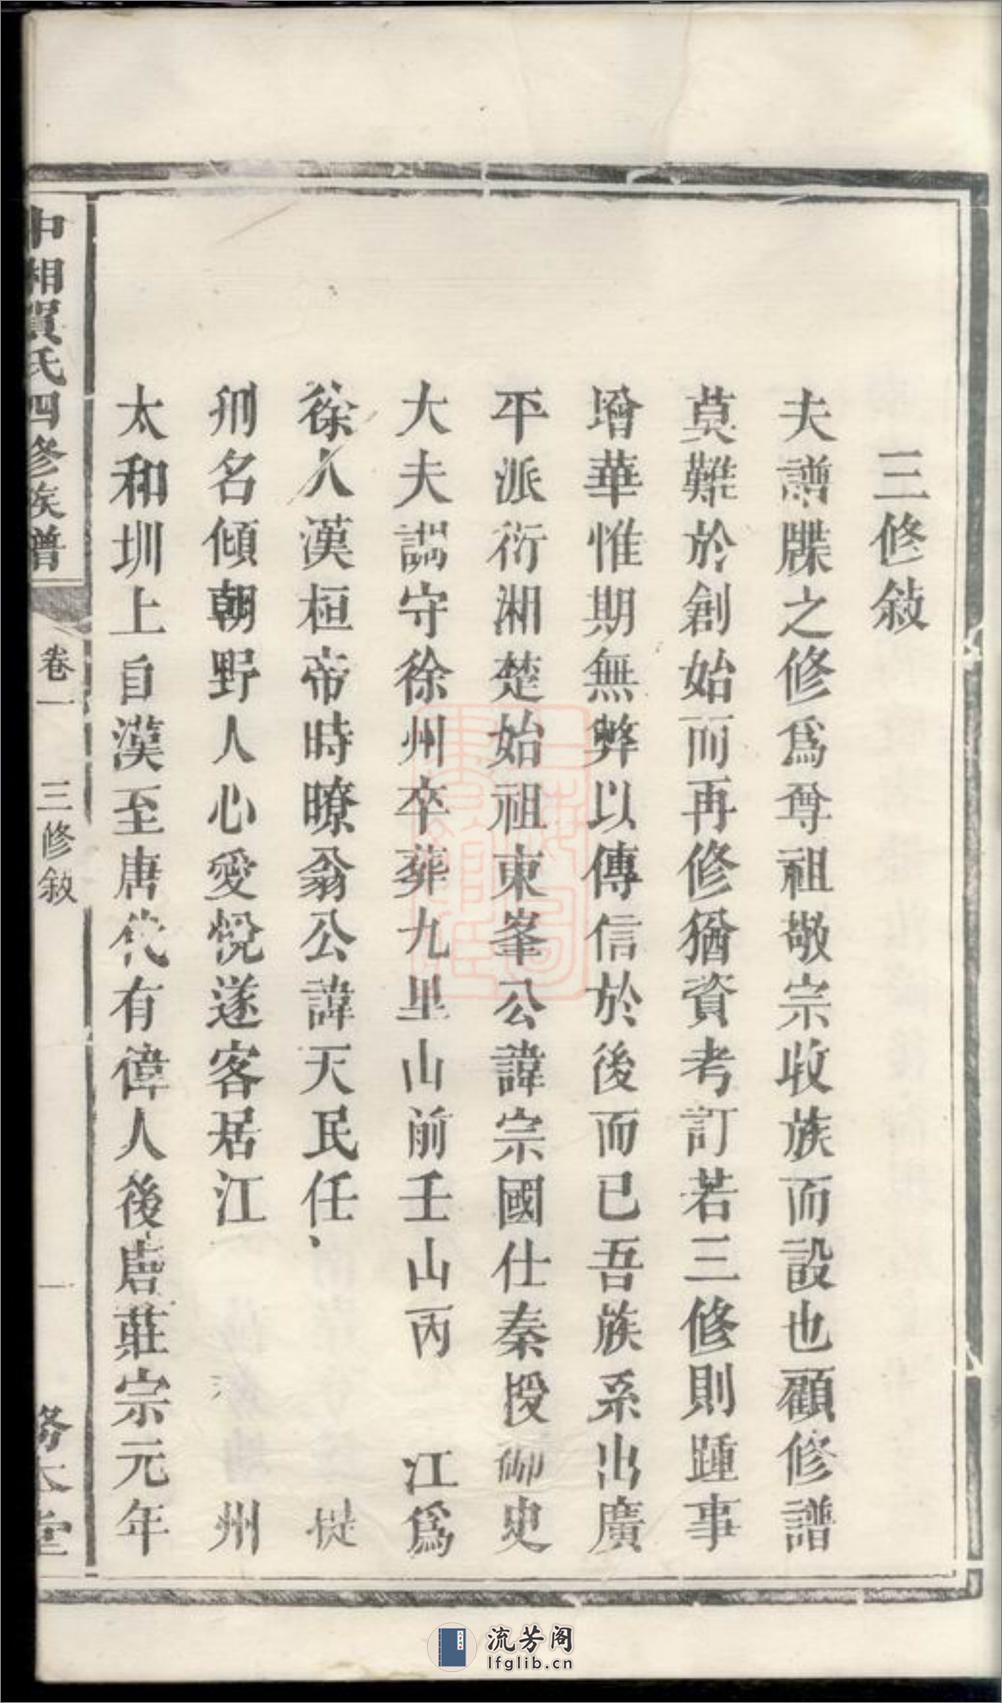 三修敘
夫譜牒之修爲尊祖敬宗收族而設也顧修譜
莫難於創始而再修猶資考訂若三修則踵事
增華惟期無弊以傳信於後而已吾族系出廣
平派衍湘楚始祖東峯公諱宗國仕秦授御史
大夫謫守徐州卒葬九里山前壬山丙 江爲
徐人漢桓帝時暸翁公諱天民任
名傾朝野人心愛悅遂客居江 州
太和圳上自漢至唐代有偉人後唐莊宗元年
中湘賀氏四修族譜
卷一
三修敘
一
務本堂
流芳阁
lfglib.cn